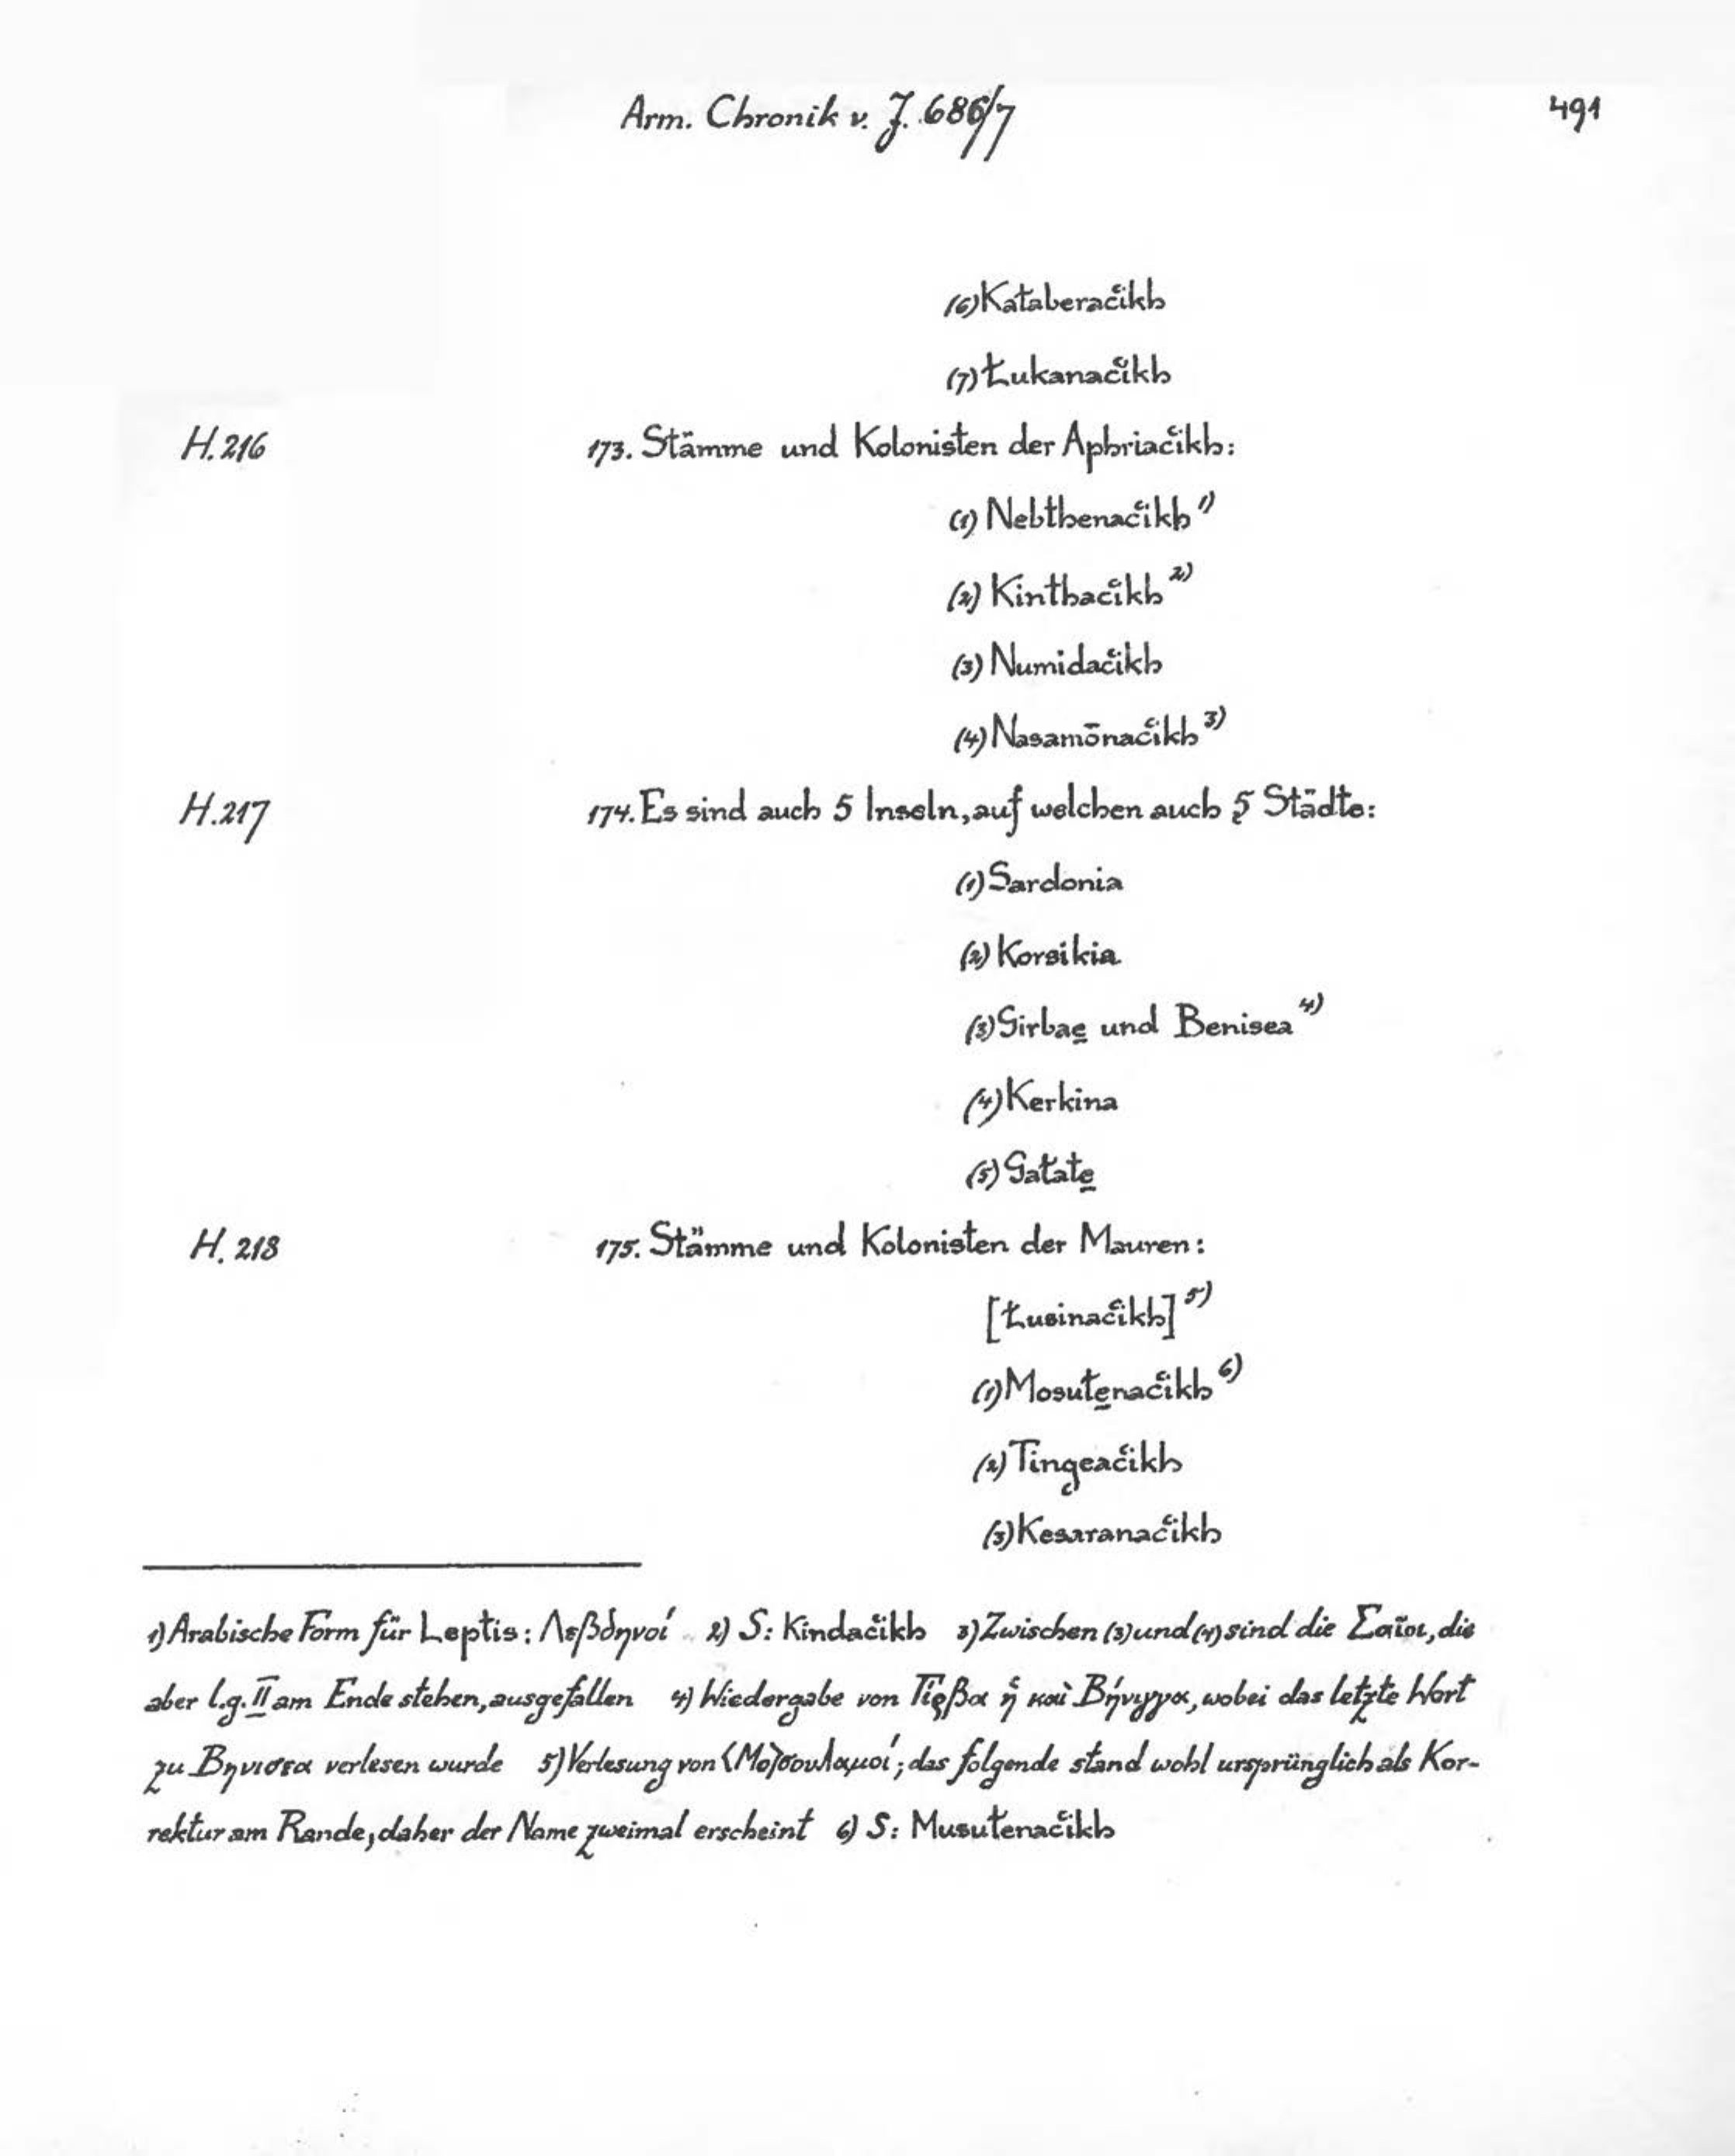 Arm. Chronik v. J. 686/7 491
(6) Kałaberac̔ikh
(7) Łukanac̔ikh
H. 216 173. Stämme und Kolonisten der Aphriac̔ikh:
(1) Nebthenac̔ikh 1)
(2) Kinthac̔ikh 2)
(3) Numidac̔ikh
(4) Nasamōnac̔ikh 3)
H. 217 174. Es sind auch 5 Inseln, auf welchen auch 5 Städte:
(1) Sardonia
(2) Korsikia
(3) Girbae̲ und Benisea 4)
(4) Kerkina
(5) Gałate̲
H. 218 175. Stämme und Kolonisten der Mauren:
[Łusinac̔ikh] 5)
(1) Mosułe̲nac̔ikh 6)
(2) Tingeac̔ikh
(3) Kesaranac̔ikh
1) Arabische Form für Leptis: Λεβδηνοί 2) S: Kindac̔ikh 3) Zwischen (3) und (4) sind die Σαῖοι, die
aber l.g. II am Ende stehen, ausgefallen 4) Wiedergabe von Γίρβα ἡ καὶ Βήνιγγα, wobei das letzte Wort
zu Βηνισεα verlesen wurde 5) Verlesung von ⟨Μο⟩σουλαμοί; das folgende stand wohl ursprünglich als Kor-
rektur am Rande, daher der Name zweimal erscheint 6) S: Musułenac̔ikh